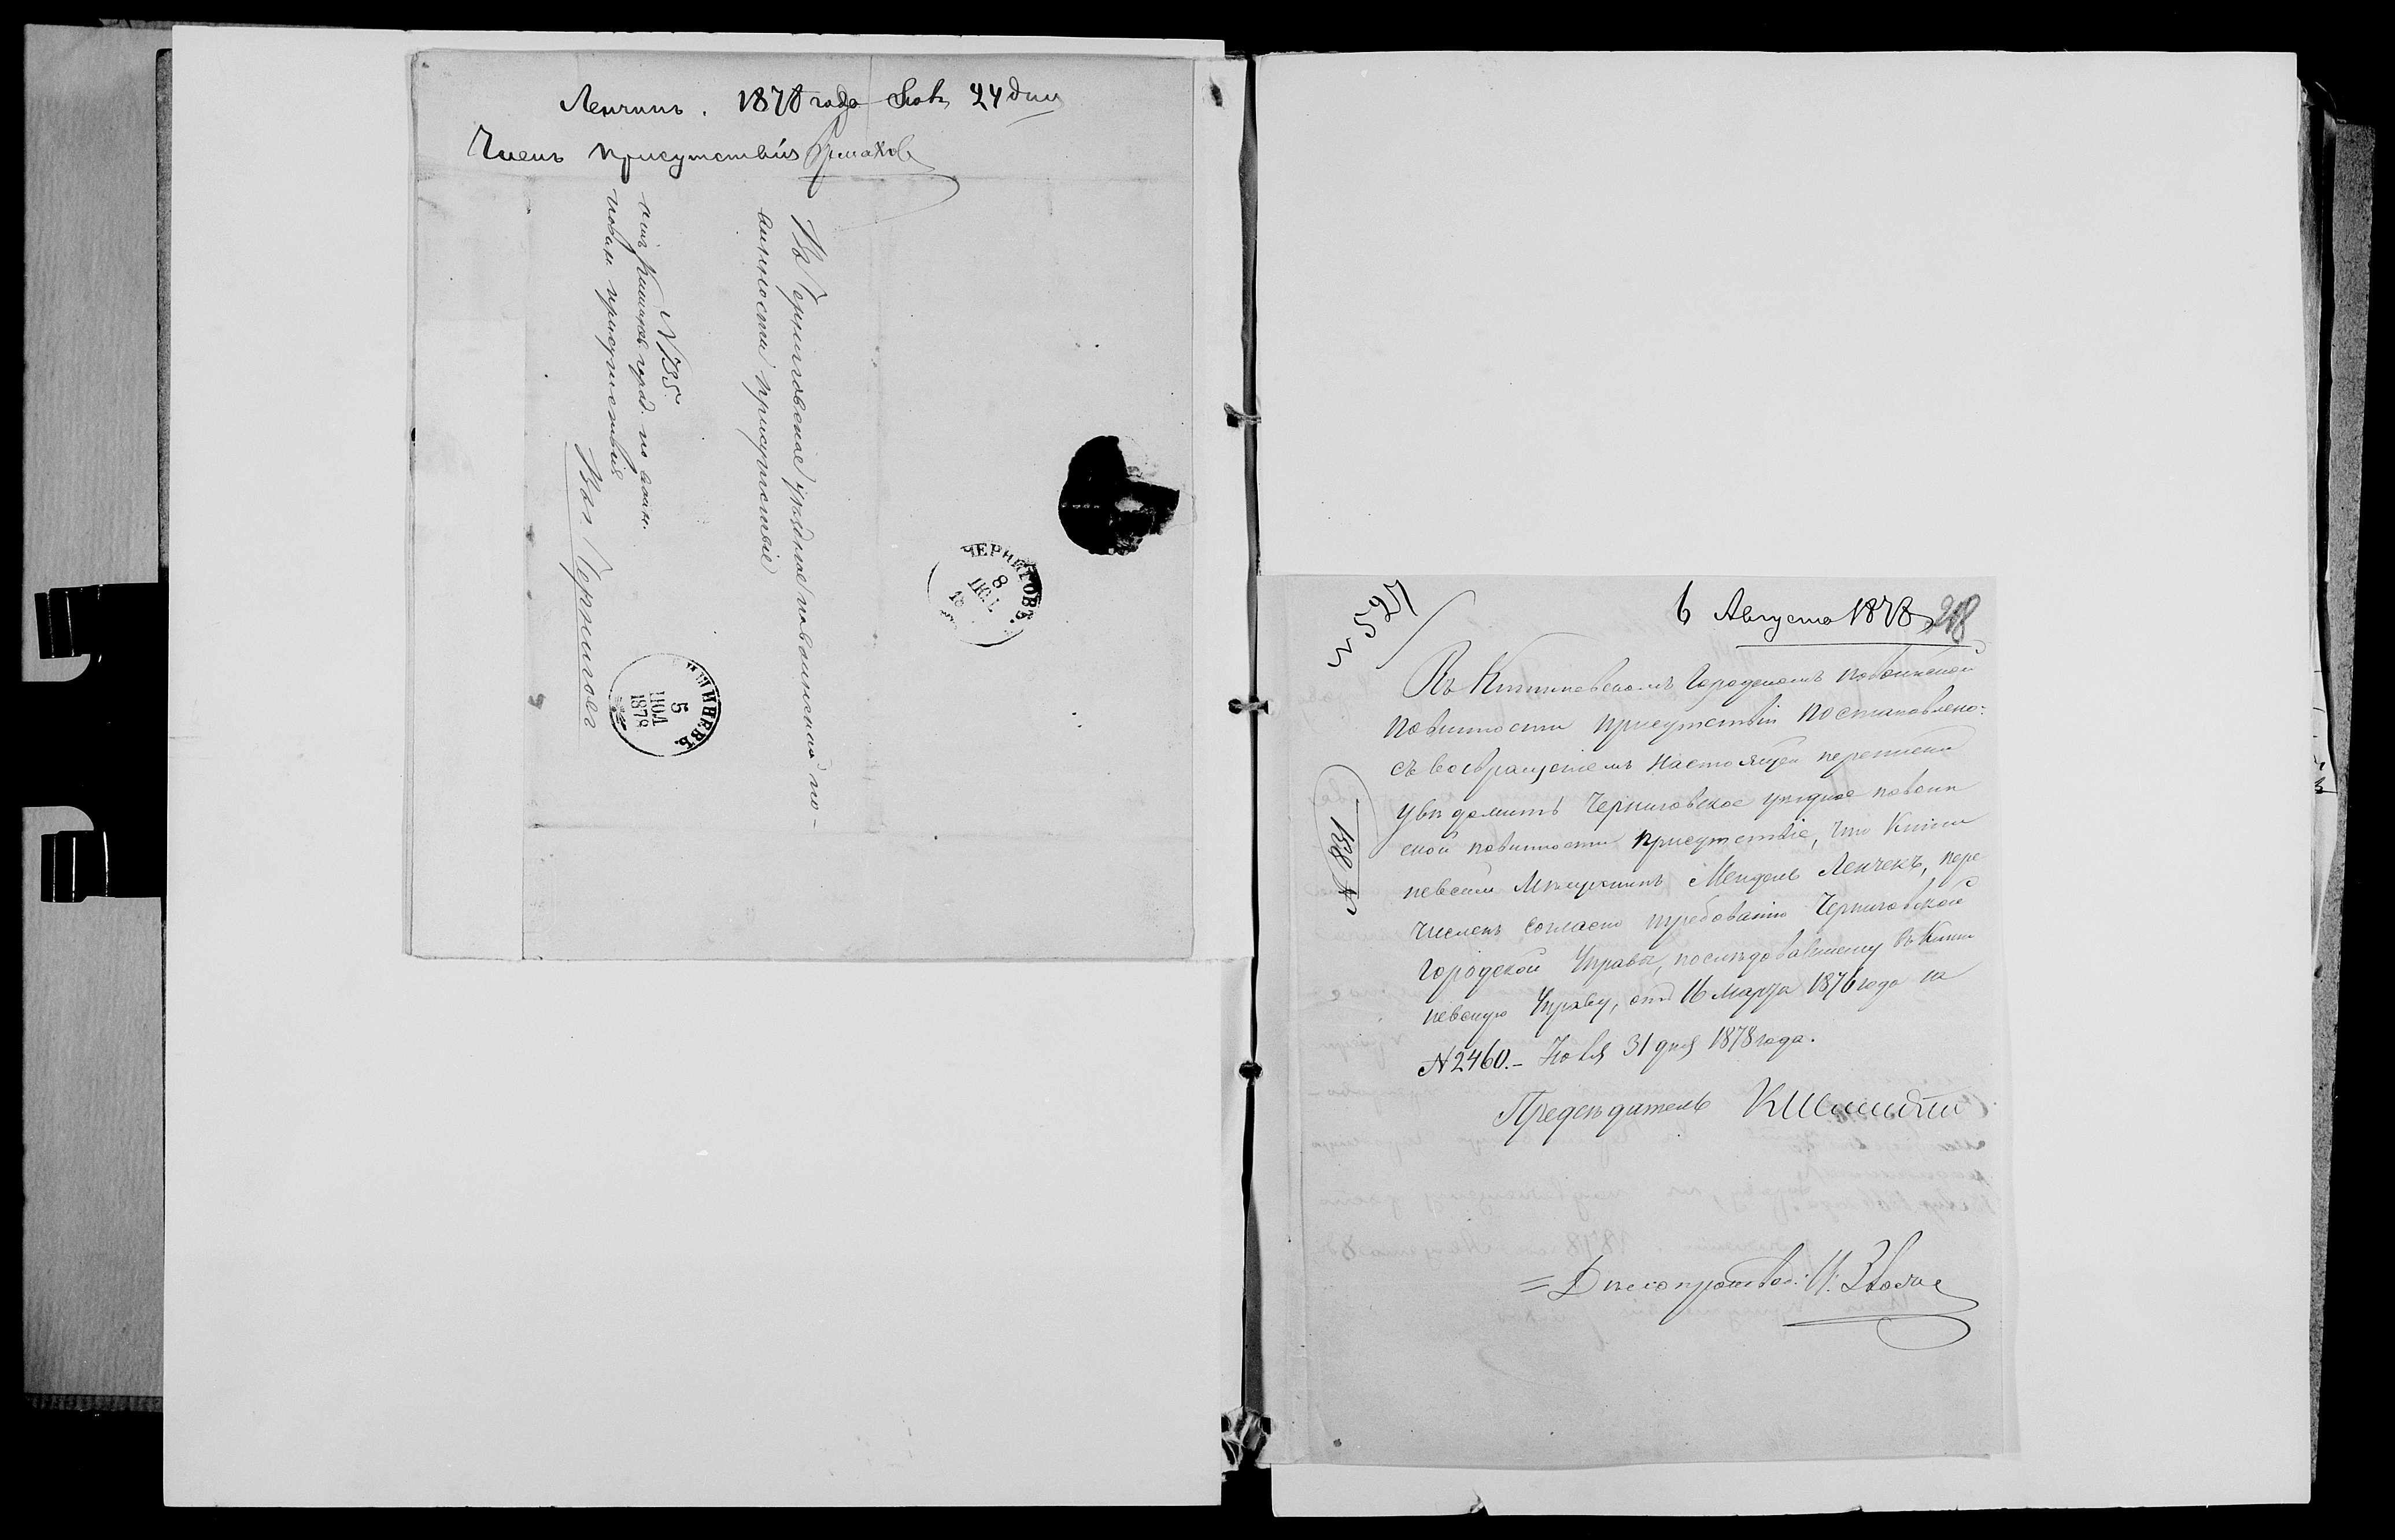 Ленчикъ. 1878 года Іюля 24 дня
Членъ присутствія Ермаковъ
Въ Черниговское уѣздное по воинской по-
винности присутствіе
N 735
отъ Кишинев. город. по воин.
повин. присутствія
Въ г. Черниговъ
ЧЕРНИГОВЪ.
8
ІЮЛ.
КИШИНЕВЪ.
5
ІЮЛ
1878
6 Августа 1878
N 527
Въ Кишиневскомъ Городскомъ по воинской
повинности присутствіи постановлено:
съ возвращеніемъ настоящей переписки
увѣдомить Черниговское уѣздное по воин
ской повинности присутствіе, что Киши
невскій мѣщанинъ Мендель Ленчекъ, пере
численъ согласно требованію Черниговской
городской Управы, послѣдовавшему въ Киши
невскую Управу, отъ 16 марта 1876 года за
N 2460.- Іюля 31 дня 1878 года.
Предсѣдатель К Шмидтъ
= Дѣлопроизвод: